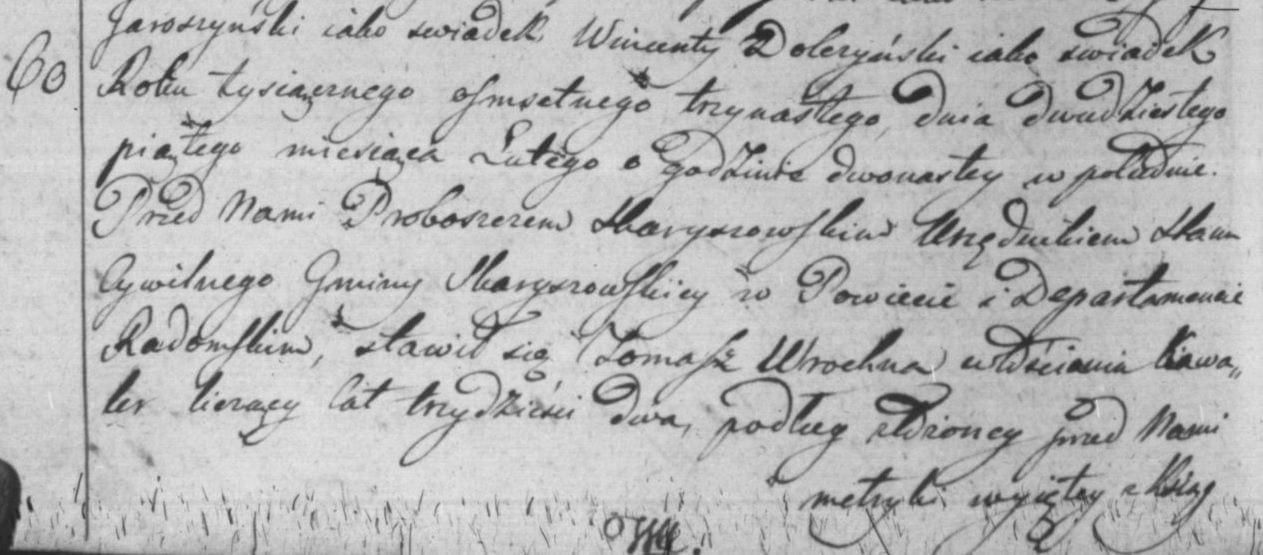 Jaroszyński iako swiadek Wincenty Doleryński iako swiadek
60
Roku tysiącznego osmsetnego trzynastego, dnia dwudziestego
piątego miesiąca Lutego o godzinie dwonastey w południe.
Przed Nami Proboszczem Skaryszowskim Urzędnikiem Stanu
Cywilnego Gminy Skaryszowskiey w Powiecie i Departamencie
Radomskim, stawił się Tomasz Wrochna włościanin Kawa„
ler liczący lat trzydzieści dwa, podług złożoney przed Nami
metryki wyjętey z Ksiąg